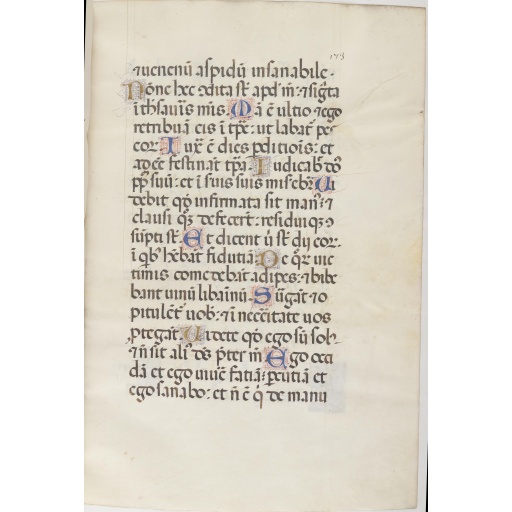 173
⁊ uenenū aspidū insanabile.
Nōne hec ɔdita sūt apd̄ m̄: ⁊ sigta
ī thesauris meis. Mā ē ultio ⁊ ego
retribuā eis ī tp̄e: ut labat̄ pes
eor̄ Iuxta ē dies pditiois: et
adeē festinat̄ tp̄a. Iudicab̄ dōs
ppl̄m suū: et ī seruis suis misereb̄r Ui
debit qd̄ infirmata sit man⁹: ⁊
clausi q̄z defecert̄: residuiqz ɔ
sūpti sūt. Et dicent ubi sūt dij eor.
ī qb⁹ hēbāt fidutiā De qōr̄ uic
timis comedebāt adipes: ⁊ bibe
bant uinū libaminū. Surgāt ⁊ o
pitulēt̄ uob̄: ⁊ ī necc̄itate uos
ptegāt Uidete qd̄ ego sū sol⁹
⁊ n̄ sit ali⁹ deus p̄ter m̄ Ego occi
dā et ego uiuē̄ faciā: pcutiā et
ego sanabo: et n̄ ē q̇ de manu